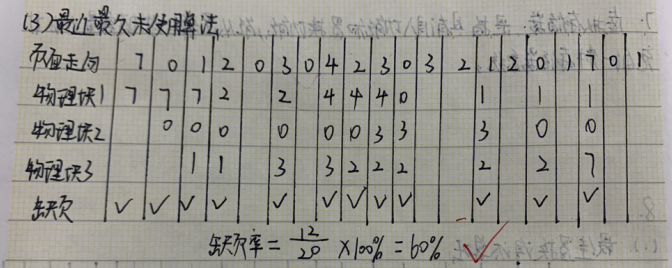 (3)最近最久未使用算法
页面走向 7 0 1 2 0 3 0 4 2 3 0 3 2 1 2 0 1 7 0 1
物理块1 7 7 7 2 2 4 4 4 0 1 1 1
物理块2 0 0 0 0 0 0 3 3 3 0 0
物理块3 1 1 3 3 2 2 2 2 2 7
缺页 ✓ ✓ ✓ ✓ ✓ ✓ ✓ ✓ ✓ ✓ ✓ ✓
缺页率 = 12/20 ×100% = 60%